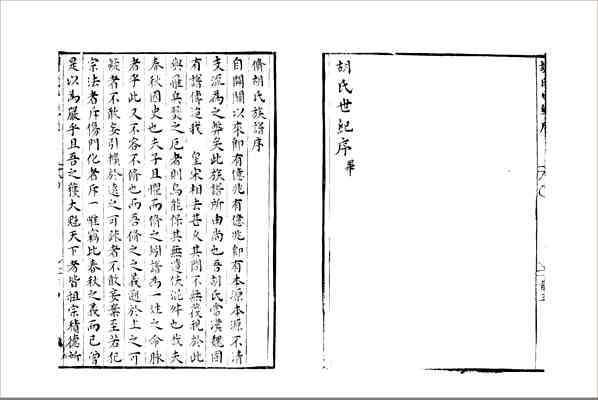 胡氏世紀序畢
脩胡氏族譜序
自開闢以來即有億兆有億兆即有本源本源不清
支流為之弊矣此族譜所由尚也吾胡氏當漢魏固
有譜傳迨我 皇宋相去甚久其間不無
兵燹之厄者則烏能保其無遺佚訛舛也哉夫
春秋國史也夫子且懼而脩之矧譜為一姓之命脉
者乎此又不容不脩也而吾脩之之義趙於上之可
疑者不敢妄引據於遠之可疎者不敢妄棄至若犯
宗法者斥傷門化者斥一唯竊比春秋之義而已曾
是以為嚴乎且吾之獲大魁天下者皆祖宗積德所